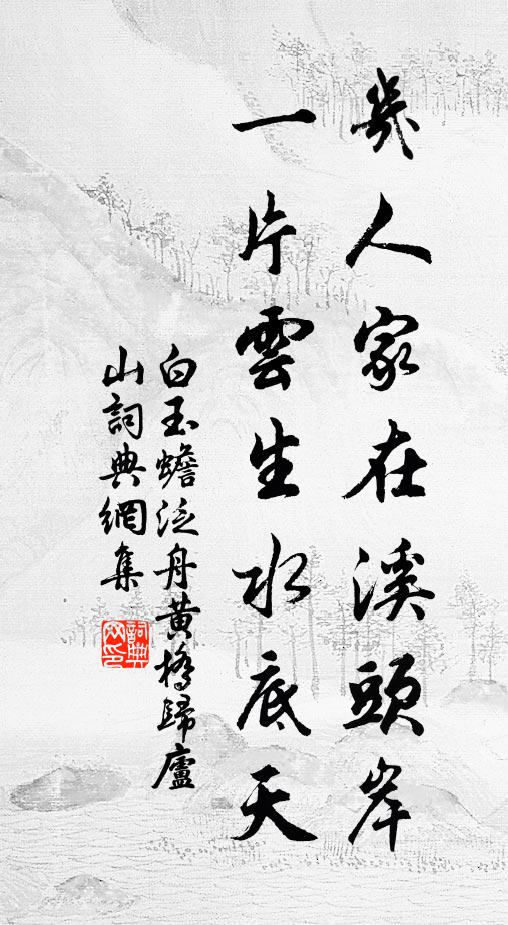 幾人家在溪頭岸
一片雲生水底天
白玉蟾泛舟黃橋歸廬
山詞典網集
詞典
網印